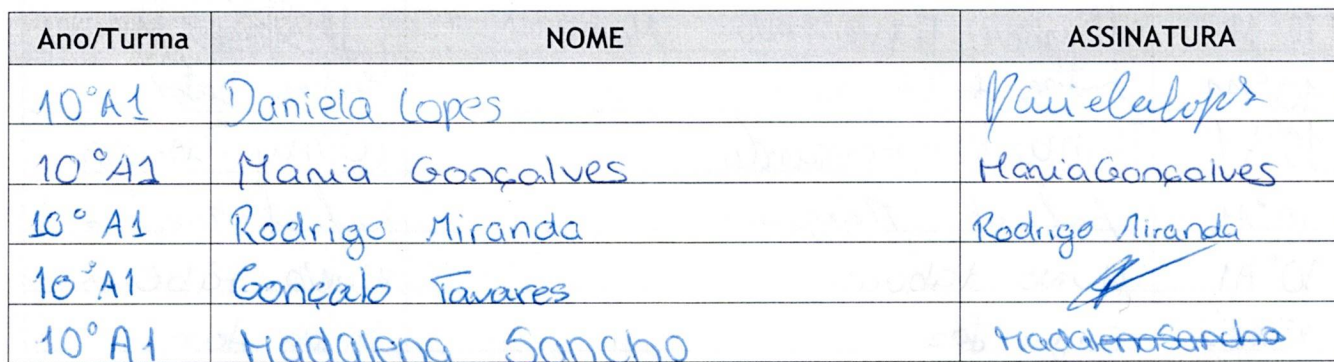 Ano/Turma NOME ASSINATURA
10ºA1 Daniela Lopes Daniela Lopes
10ºA1 Maria Gonçalves Maria Gonçalves
10ºA1 Rodrigo Miranda Rodrigo Miranda
10ºA1 Gonçalo Tavares
10ºA1 Madalena Sancho Madalena Sancho